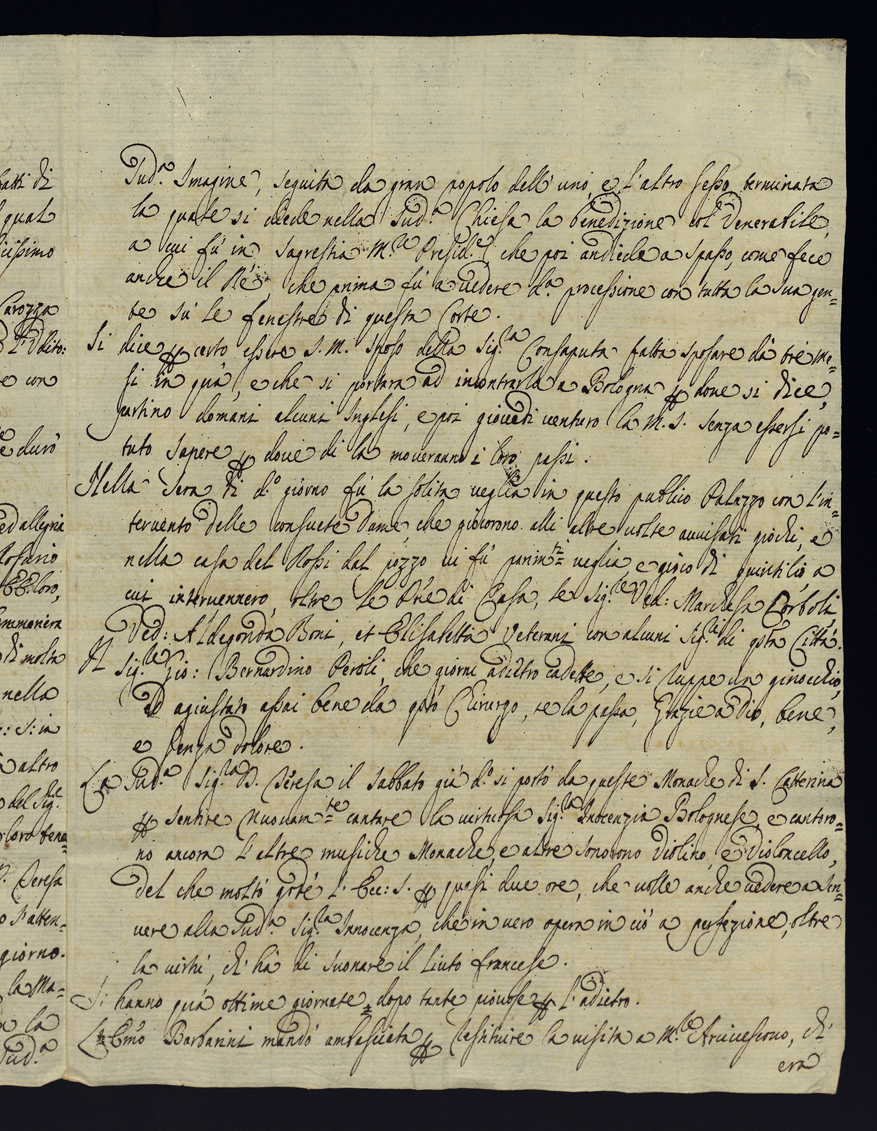 Sud.ª Imagine, seguita da gran popolo dell' uno, e l'altro sesso, terminata
la quale si diede nella Sud.ª Chiesa la benedizione col Venerabile,
a cui fú in sagrestia M.re Presid.e, che poi andiede a spasso, come fece
anche il Ré, che prima fú a vedere d.ª processione con tutta la sua gen=
te sú le fenestre di questa Corte.
Si dice p certo essere S. M. sposo della Sig.ra Consaputa fatta sposare da tré me=
si in quà, e che si porterà ad incontrarla a Bologna p dove si dice,
partino domani alcuni Inglesi, e poi giovedi venturo la M. S. senza essersi po=
tuto sapere p dove di là moveranno i loro passi.
Nella Sera di d.º giorno fú la solita veglia in questo publico Palazzo con l'in=
tervento delle consuete Dame, che giocorono alli altre volte avvisati giochi, e
nella casa del Rossi dal pozzo vi fú parim.ti veglia, e gioco di quintilio, a
cui intervennero, oltre le Pñe di Casa, le Sig.re Ved: Marchesa Corboli
Ved: Aldegonda Boni, et Elisabetta Veterani con alcuni Sig.ri di qsta Città.
Il Sig.re Gio: Bernardino Peroli, che giorni adietro cadette, e si ruppe un ginocchio,
ed agiustato assai bene da qsto Cirurgo, se la passa, Grazie a Dio, bene,
e senza dolore.
La Sud.ª Sig.ra D. Teresa il Sabbato già d.º si portò da queste Monache di S. Catterina
p sentire nuovam.te cantare la virtuosa Sig.ra Inocenzia Bolognese, e cantoro=
no ancora l'altre musiche Monache, e altre sonorono Violino, e Violoncello,
del che moltò godé l' Ecc: S. p quasi due ore, che volle anche vedere a scri=
vere alla Sud.ª Sig.ra Innocenza, che in vero opera in ciò a perfezione, oltre
la virtú, ch' hà di suonare il Liuto francese.
Si hanno quà ottime giornate dopo tante piovose p l'adietro.
L' Emo Barbarini mandò ambasciata p restituire la visita a M.re Arcivescovo, ch'
era